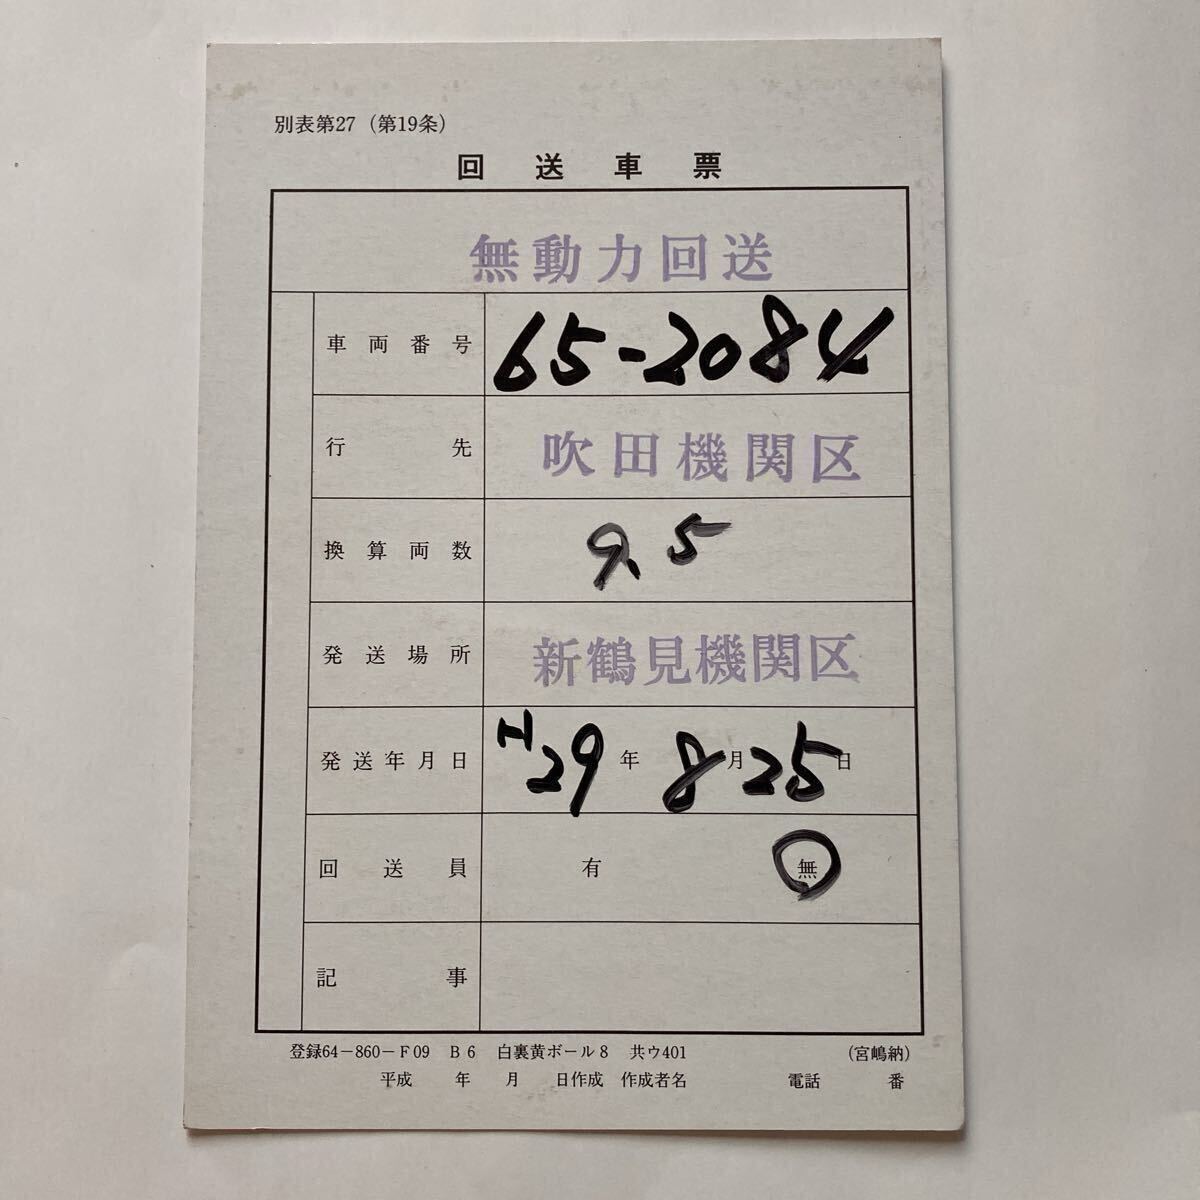 別表第27（第19条）
回送車票
無動力回送
車両番号 65-2084
行先 吹田機関区
換算両数 9.5
発送場所 新鶴見機関区
発送年月日 H29年8月25日
回送員 有 無
記事
登録64－860－F09 B6 白裏黄ボール8 共ウ401 （宮嶋納）
平成 年 月 日作成 作成者名 電話 番